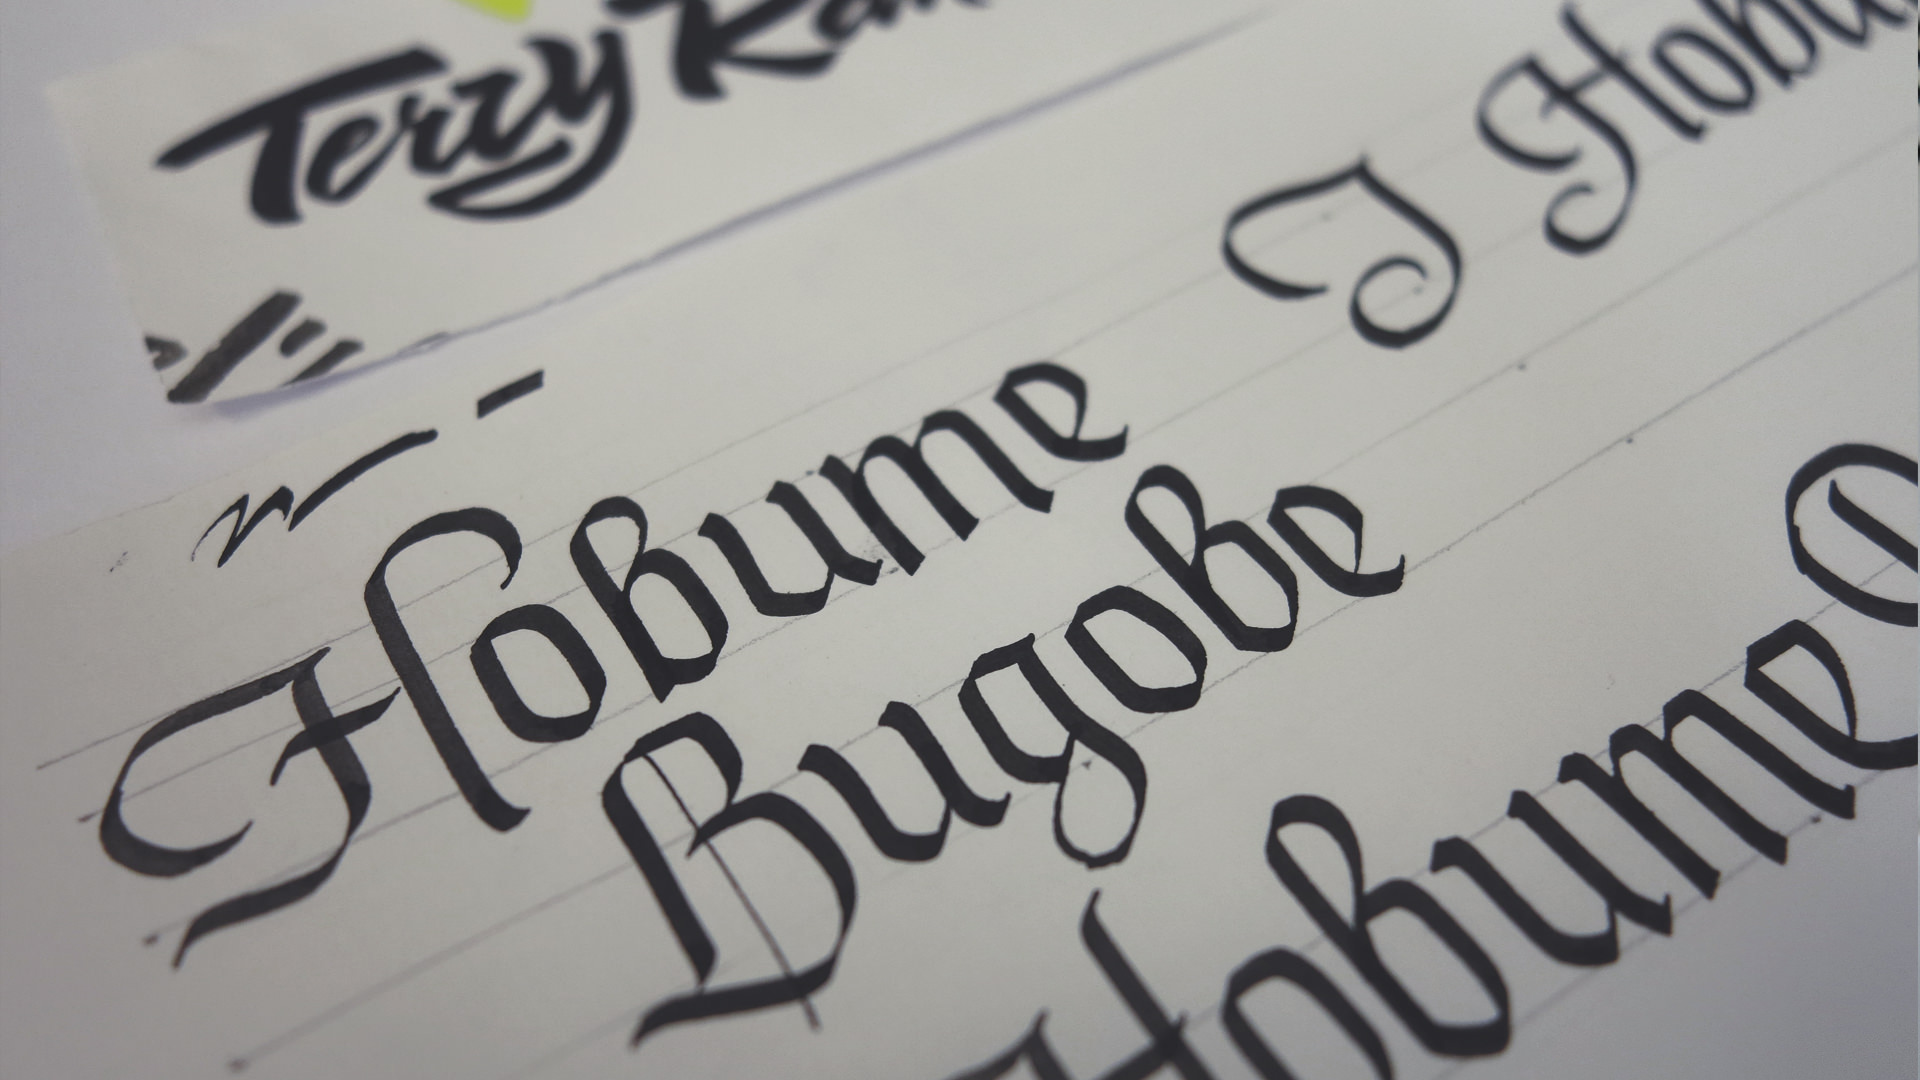 Terry
Нови
Новите
Видове
Новите